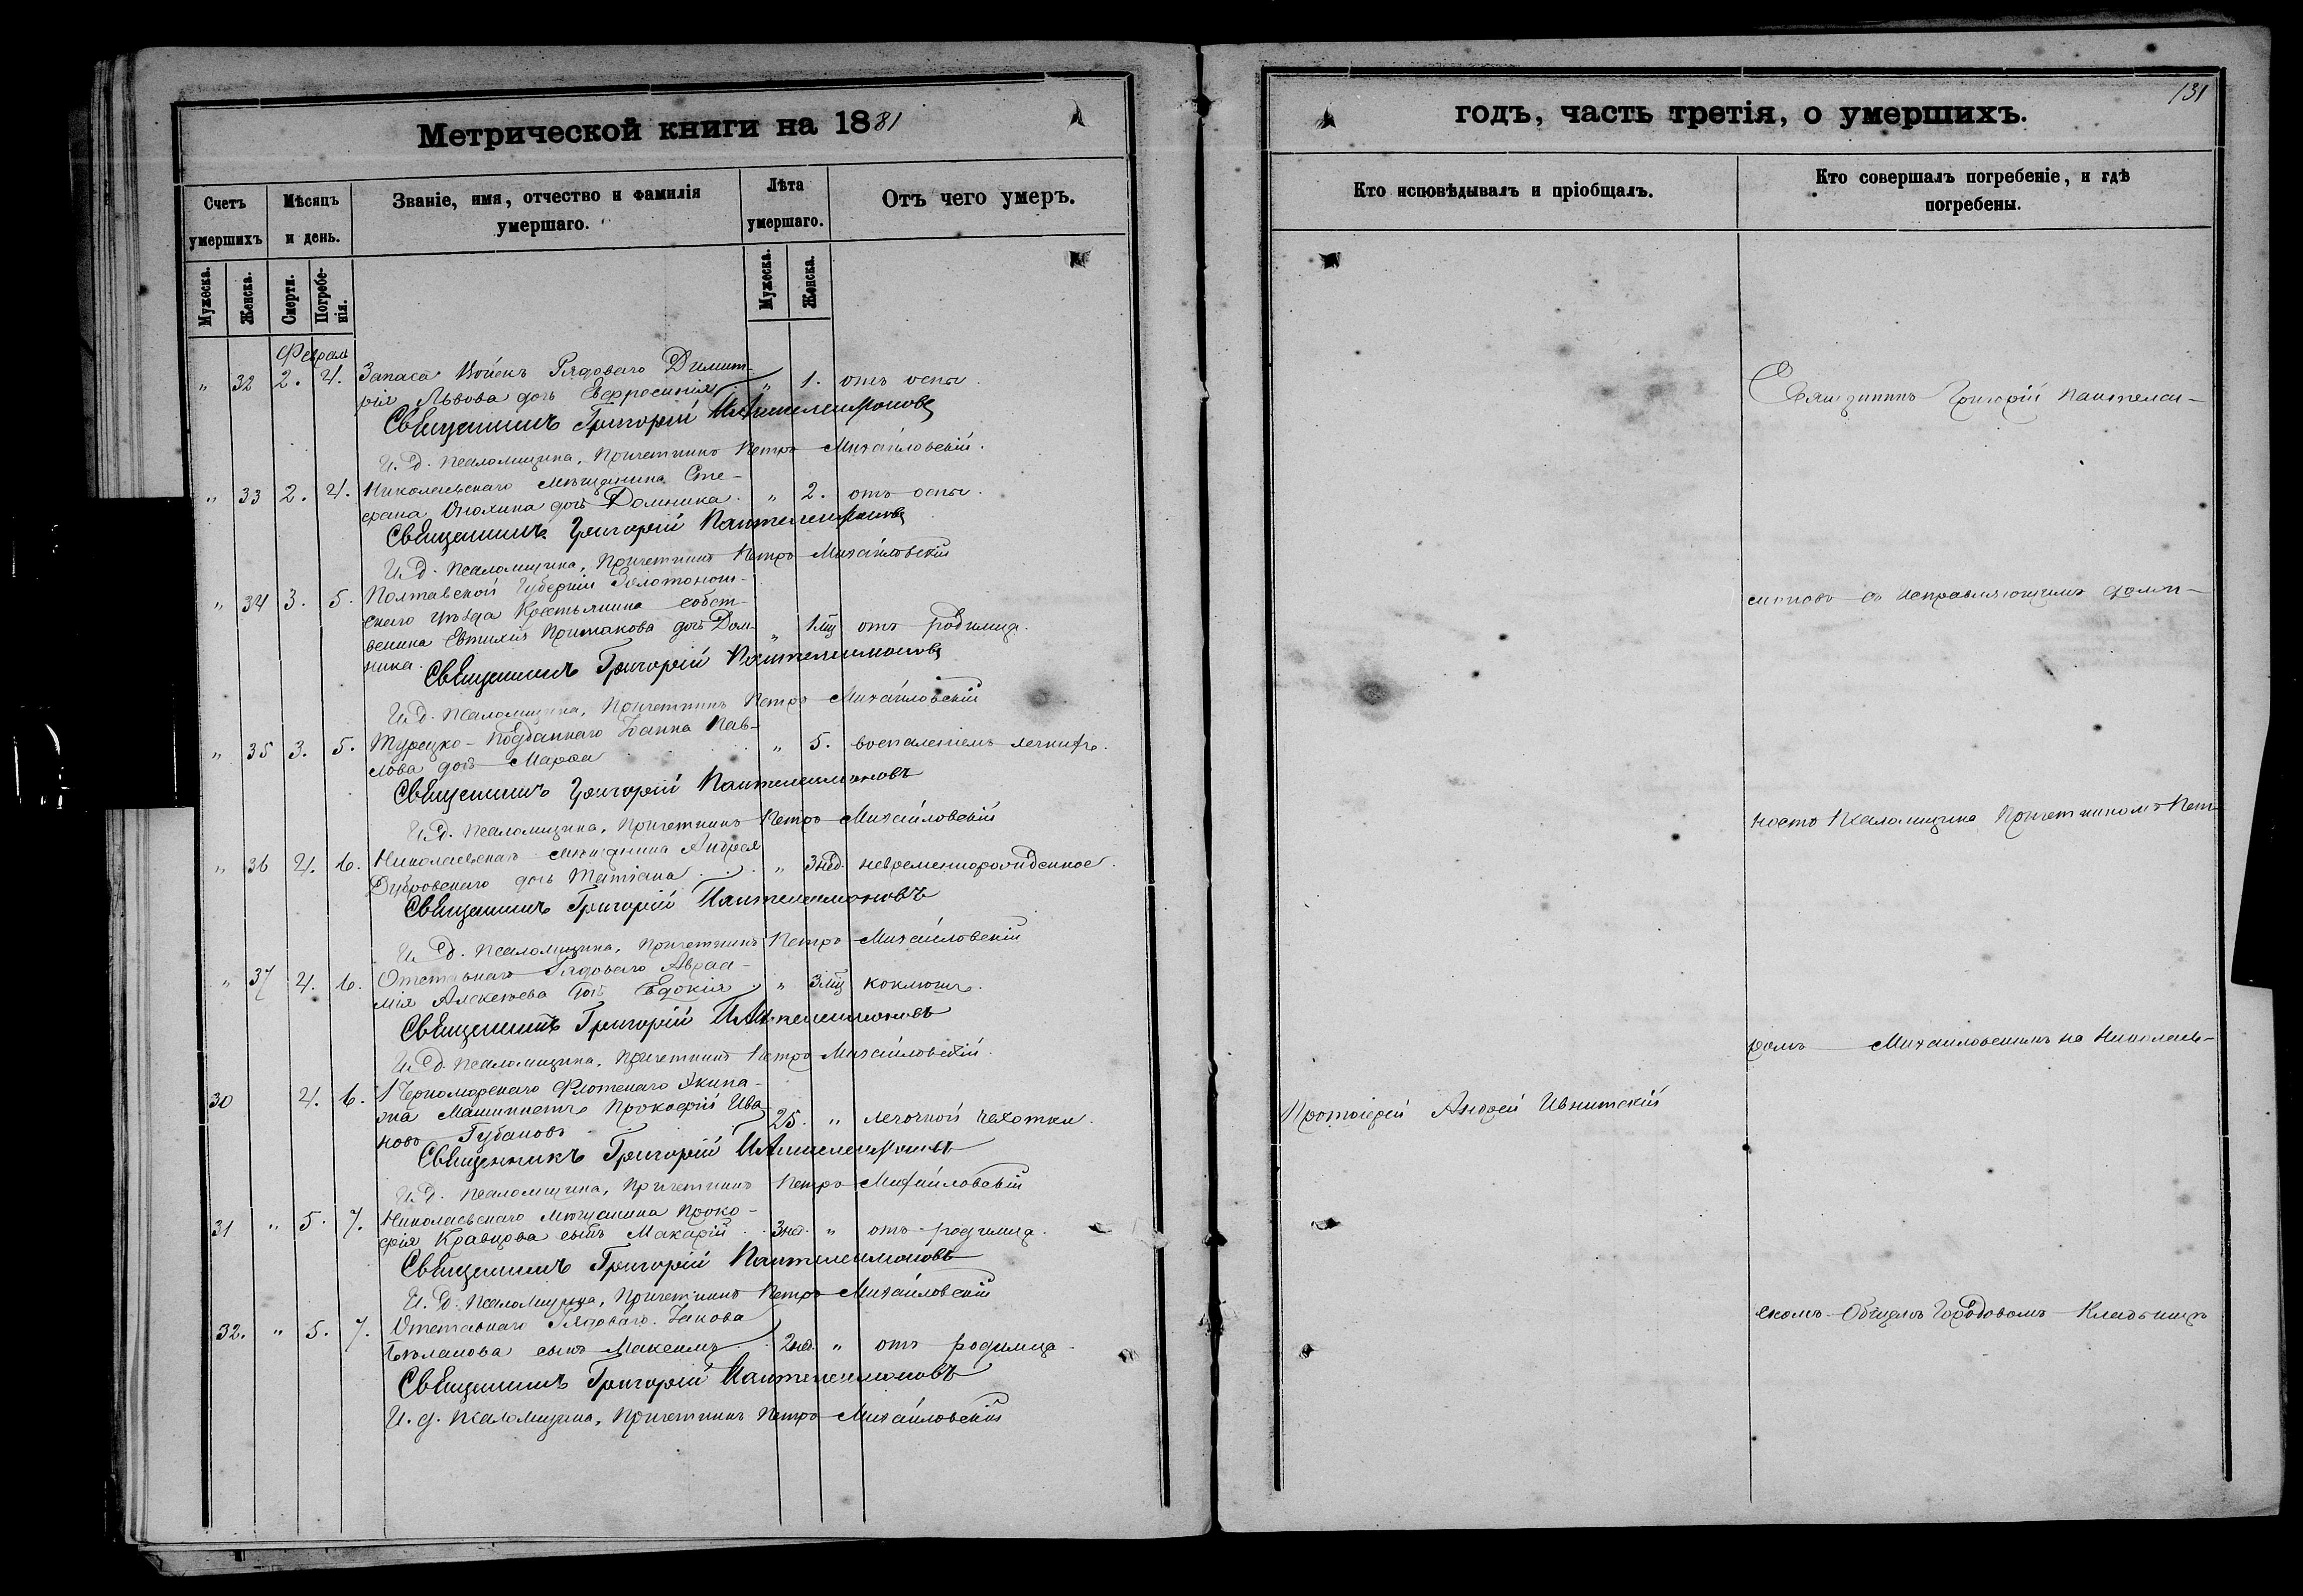 Метрической книги на 1881
Счетъ умершихъ
Мѣсяцъ и день.
Званіе, имя, отчество и фамилія умершаго.
Лѣта умершаго.
Отъ чего умеръ.
Мужеска.
Женска.
Смерти.
Погребенія.
Мужеска.
Женска.
Февраль
" 32 2. 4. Запаса Войскъ Рядоваго Димит-
рія Львова дочь Евфросинія " 1. отъ оспы.
Священникъ Григорій Пантелеимоновъ
И. д. Псаломщика, Причетникъ Петръ Михайловскій.
" 33 2. 4. Николаевскаго мѣщанина Сте-
фана дочь Домника. " 2. отъ оспы.
Священникъ Григорій Пантелеимоновъ
И. д. Псаломщика, Причетникъ Петръ Михайловскій
" 34 3. 5. Полтавской Губерніи Золотонош-
скаго уѣзда Крестьянина собст-
веника Евтихія Примакова дочь Дом- " 1 мц отъ родимца.
ника.
Священникъ Григорій Пантелеимоновъ
И. д. Псаломщика, Причетникъ Петръ Михайловскій
" 35 3. 5. Турецко-подданнаго Іоанна Пав- " 5. воспаленіемъ легкихъ.
лова дочь Марфа
Священникъ Григорій Пантелеимоновъ
И. д. Псаломщика, Причетникъ Петръ Михайловскій
" 36 4. 6. Николаевскаго мѣщанина Андрея
Дубровскаго дочь Татіана " 3 нед. невременнорожденное.
Священникъ Григорій Пантелеимоновъ
И. д. Псаломщика, Причетникъ Петръ Михайловскій
" 37 4. 6. Отставнаго Рядоваго Авраа-
мія дочь Евдокія. " 3 мц коклюшъ.
Священникъ Григорій Пантелеимоновъ
И. д. Псаломщика, Причетникъ Петръ Михайловскій.
30 4. 6. 1 Черноморскаго Флотскаго Экипа-
жа Машинистъ Прокофій Ива-
новъ Губановъ 25. " легочной чахотки.
Священникъ Григорій Пантелеимоновъ
И. д. Псаломщика, Причетникъ Петръ Михайловскій
31 " 5. 7. Николаевскаго мѣщанина Проко-
фія Кравцова сынъ Макарій 3 нед. " отъ родимца.
Священникъ Григорій Пантелеимоновъ
И. д. Псаломщика, Причетникъ Петръ Михайловскій
32. " 5. 7. Отставнаго Рядоваго Іакова
сынъ Максимъ 2 нед. " отъ родимца.
Священникъ Григорій Пантелеимоновъ
И. д. Псаломщика, Причетникъ Петръ Михайловскій
131
годъ, часть третія, о умершихъ.
Кто исповѣдывалъ и пріобщалъ.
Кто совершалъ погребеніе, и гдѣ погребены.
Священникъ Григорій Пантелеи-
моновъ съ исправляющимъ долж-
ность Псаломщика Причетникомъ Пет-
ромъ Михайловскимъ на Николаев-
Протоіерей Андрей
скомъ Общемъ Городовомъ Кладбищѣ